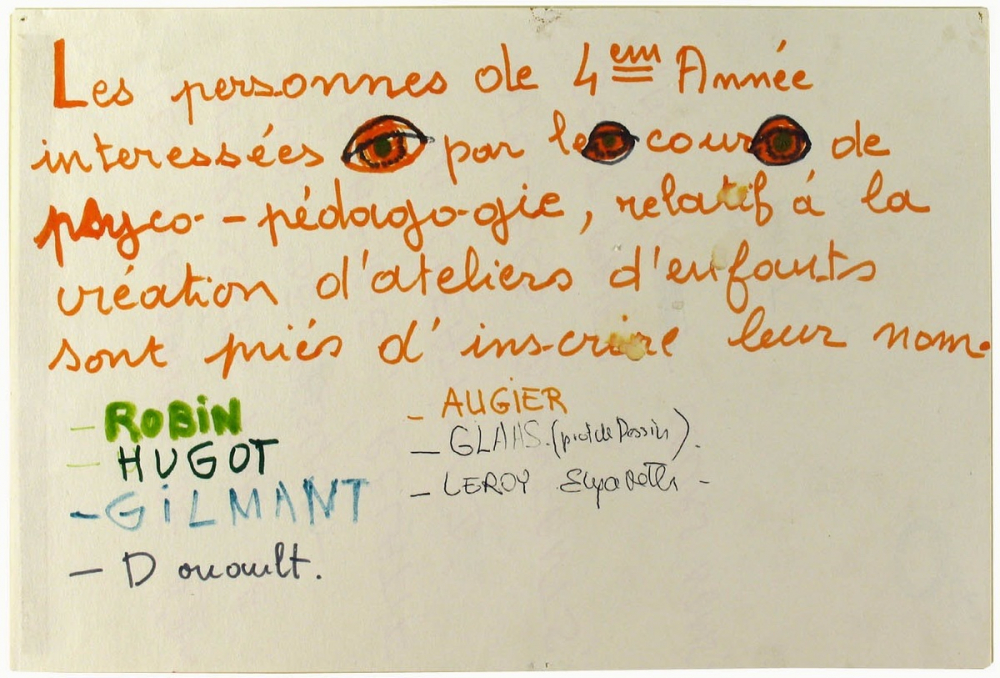 Les personnes de 4em Année
interessées par le cour de
psyco - pédago-gie, relatif à la
création d'ateliers d'enfants
sont priés d'ins-crire leur nom.
- ROBIN
- HUGOT
- GiLMANT
- Douault.
- AUGIER
- GLAAS. (prof de Dessin).
- LEROY Elisabeth -